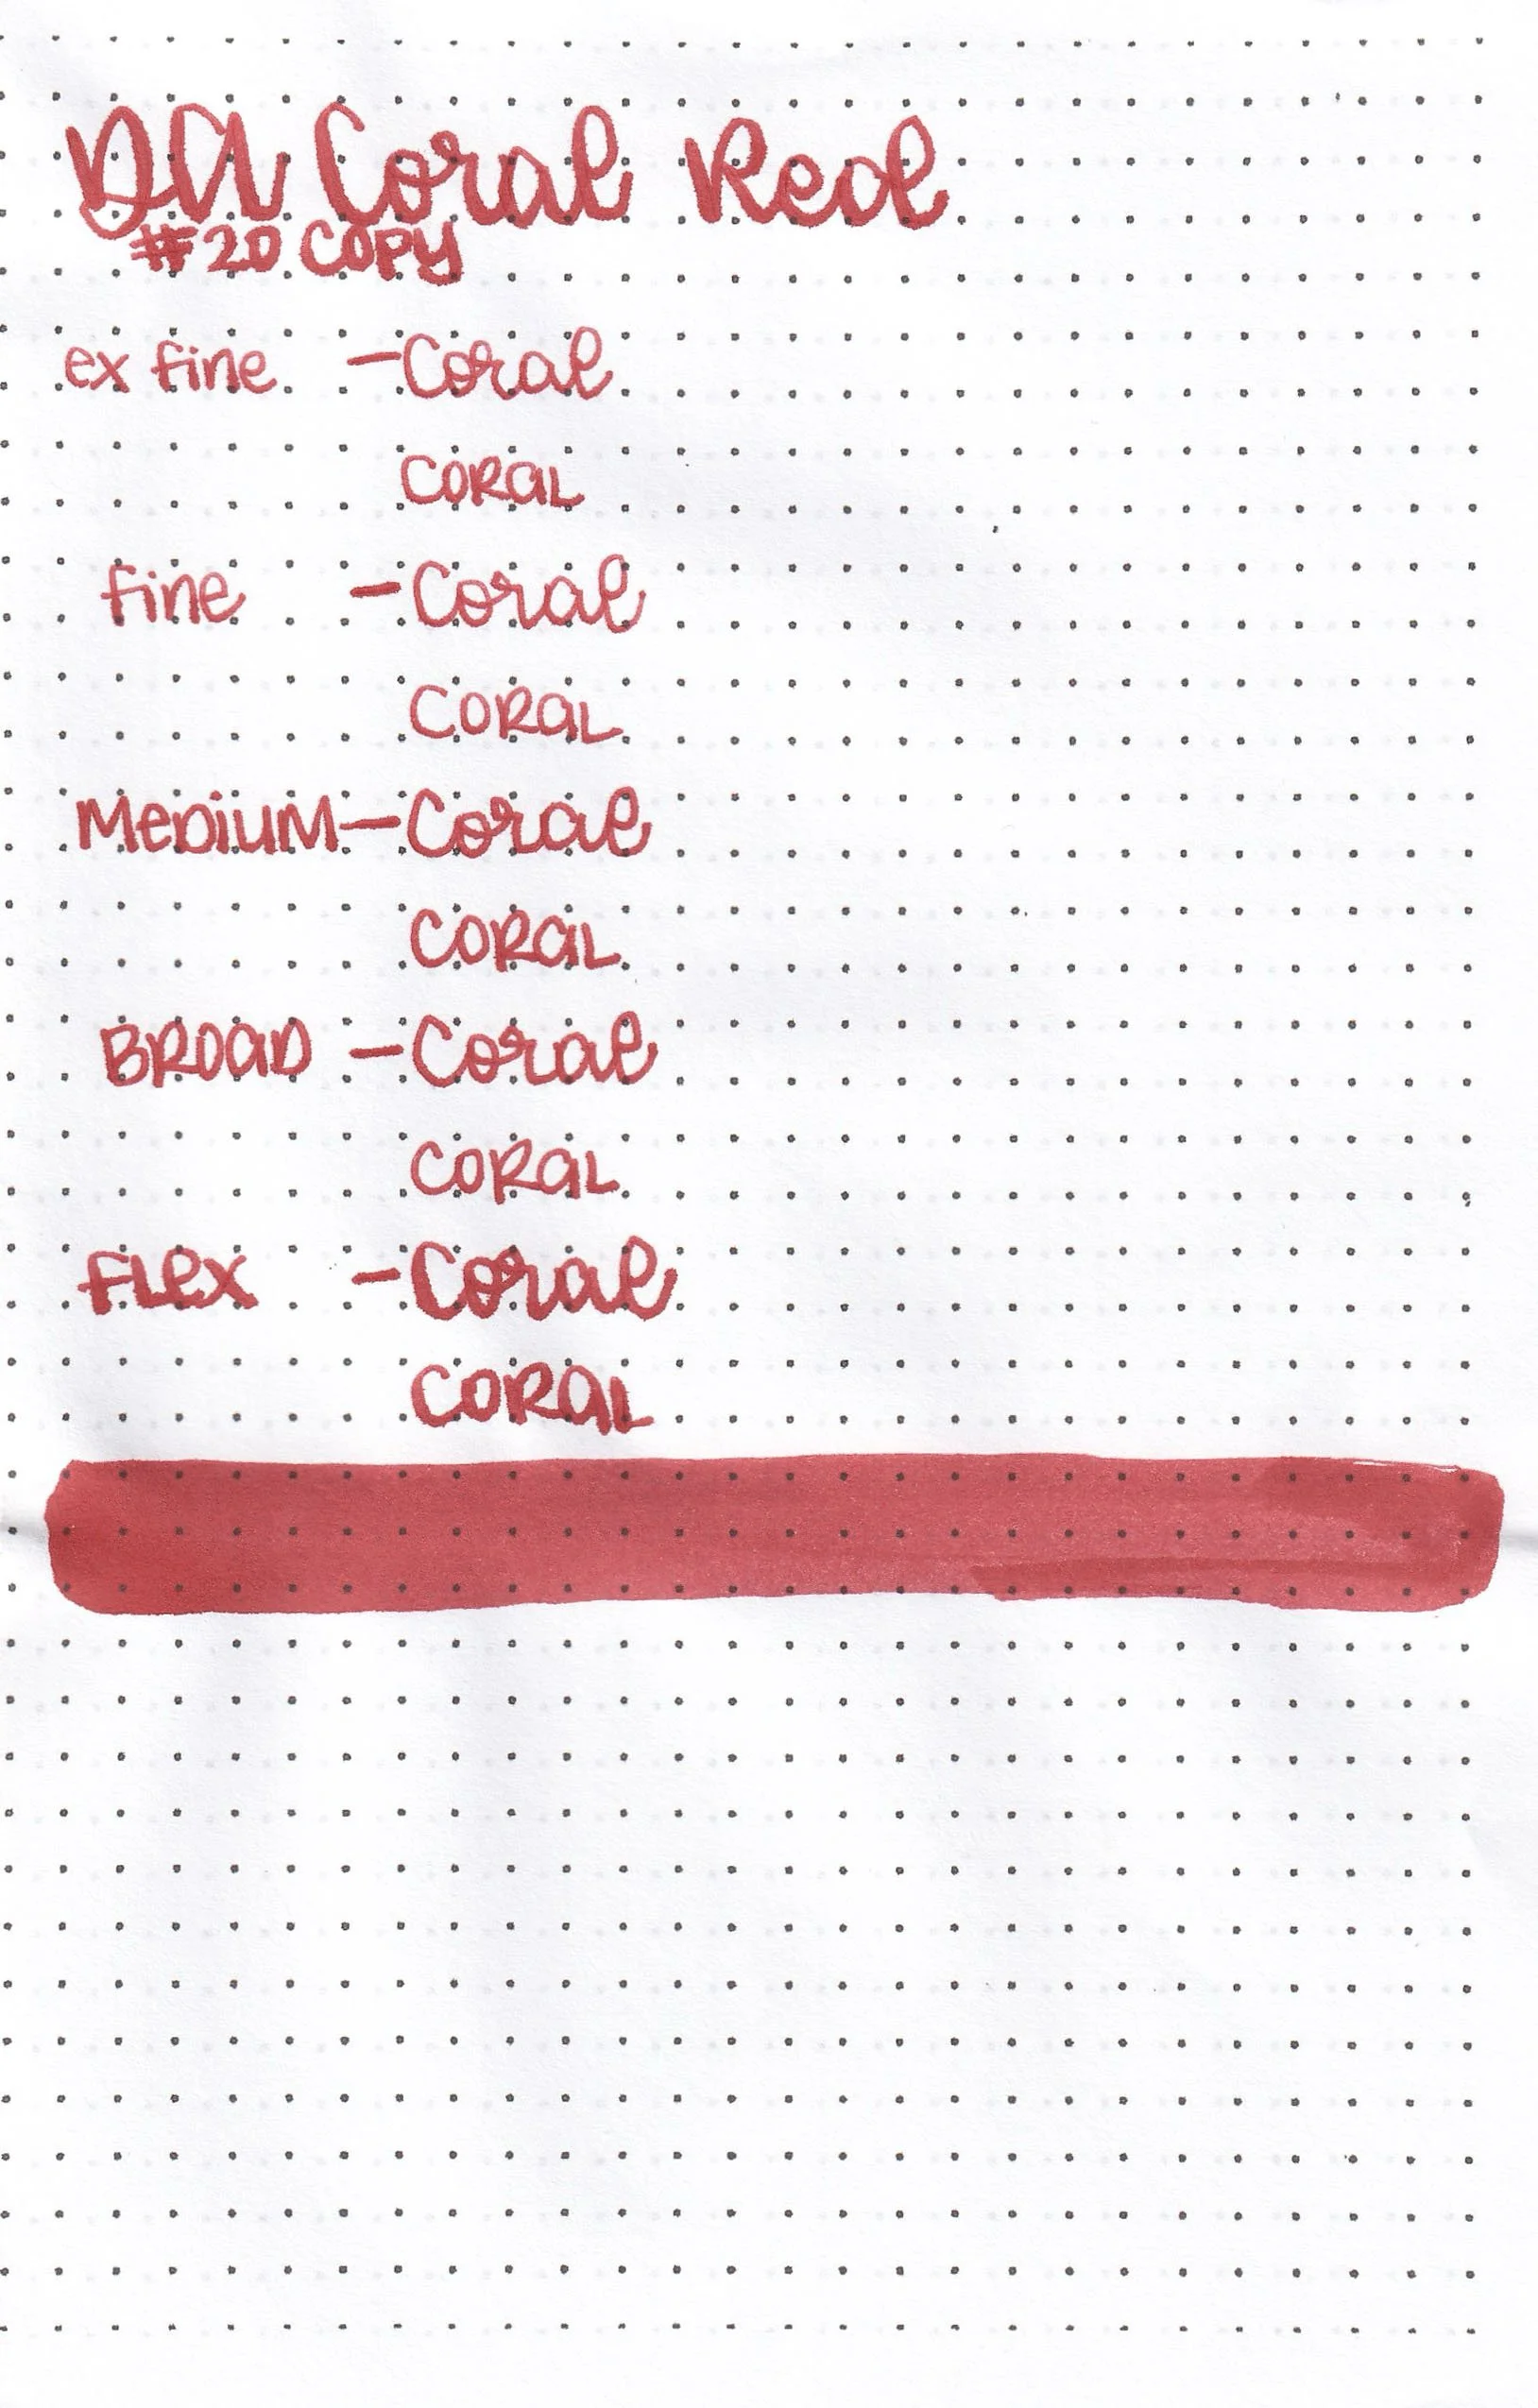 DA Coral Red
#20 COPY
ex fine - Coral
CORAL
fine - Coral
CORAL
MeDiuM - Coral
CORAL
BROAD - Coral
CORAL
FLex - Coral
CORAL